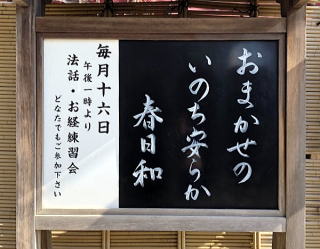 おまかせの
いのち安らか
春日和
毎月十六日
午後一時より
法話・お経練習会
どなたでもご参加下さい